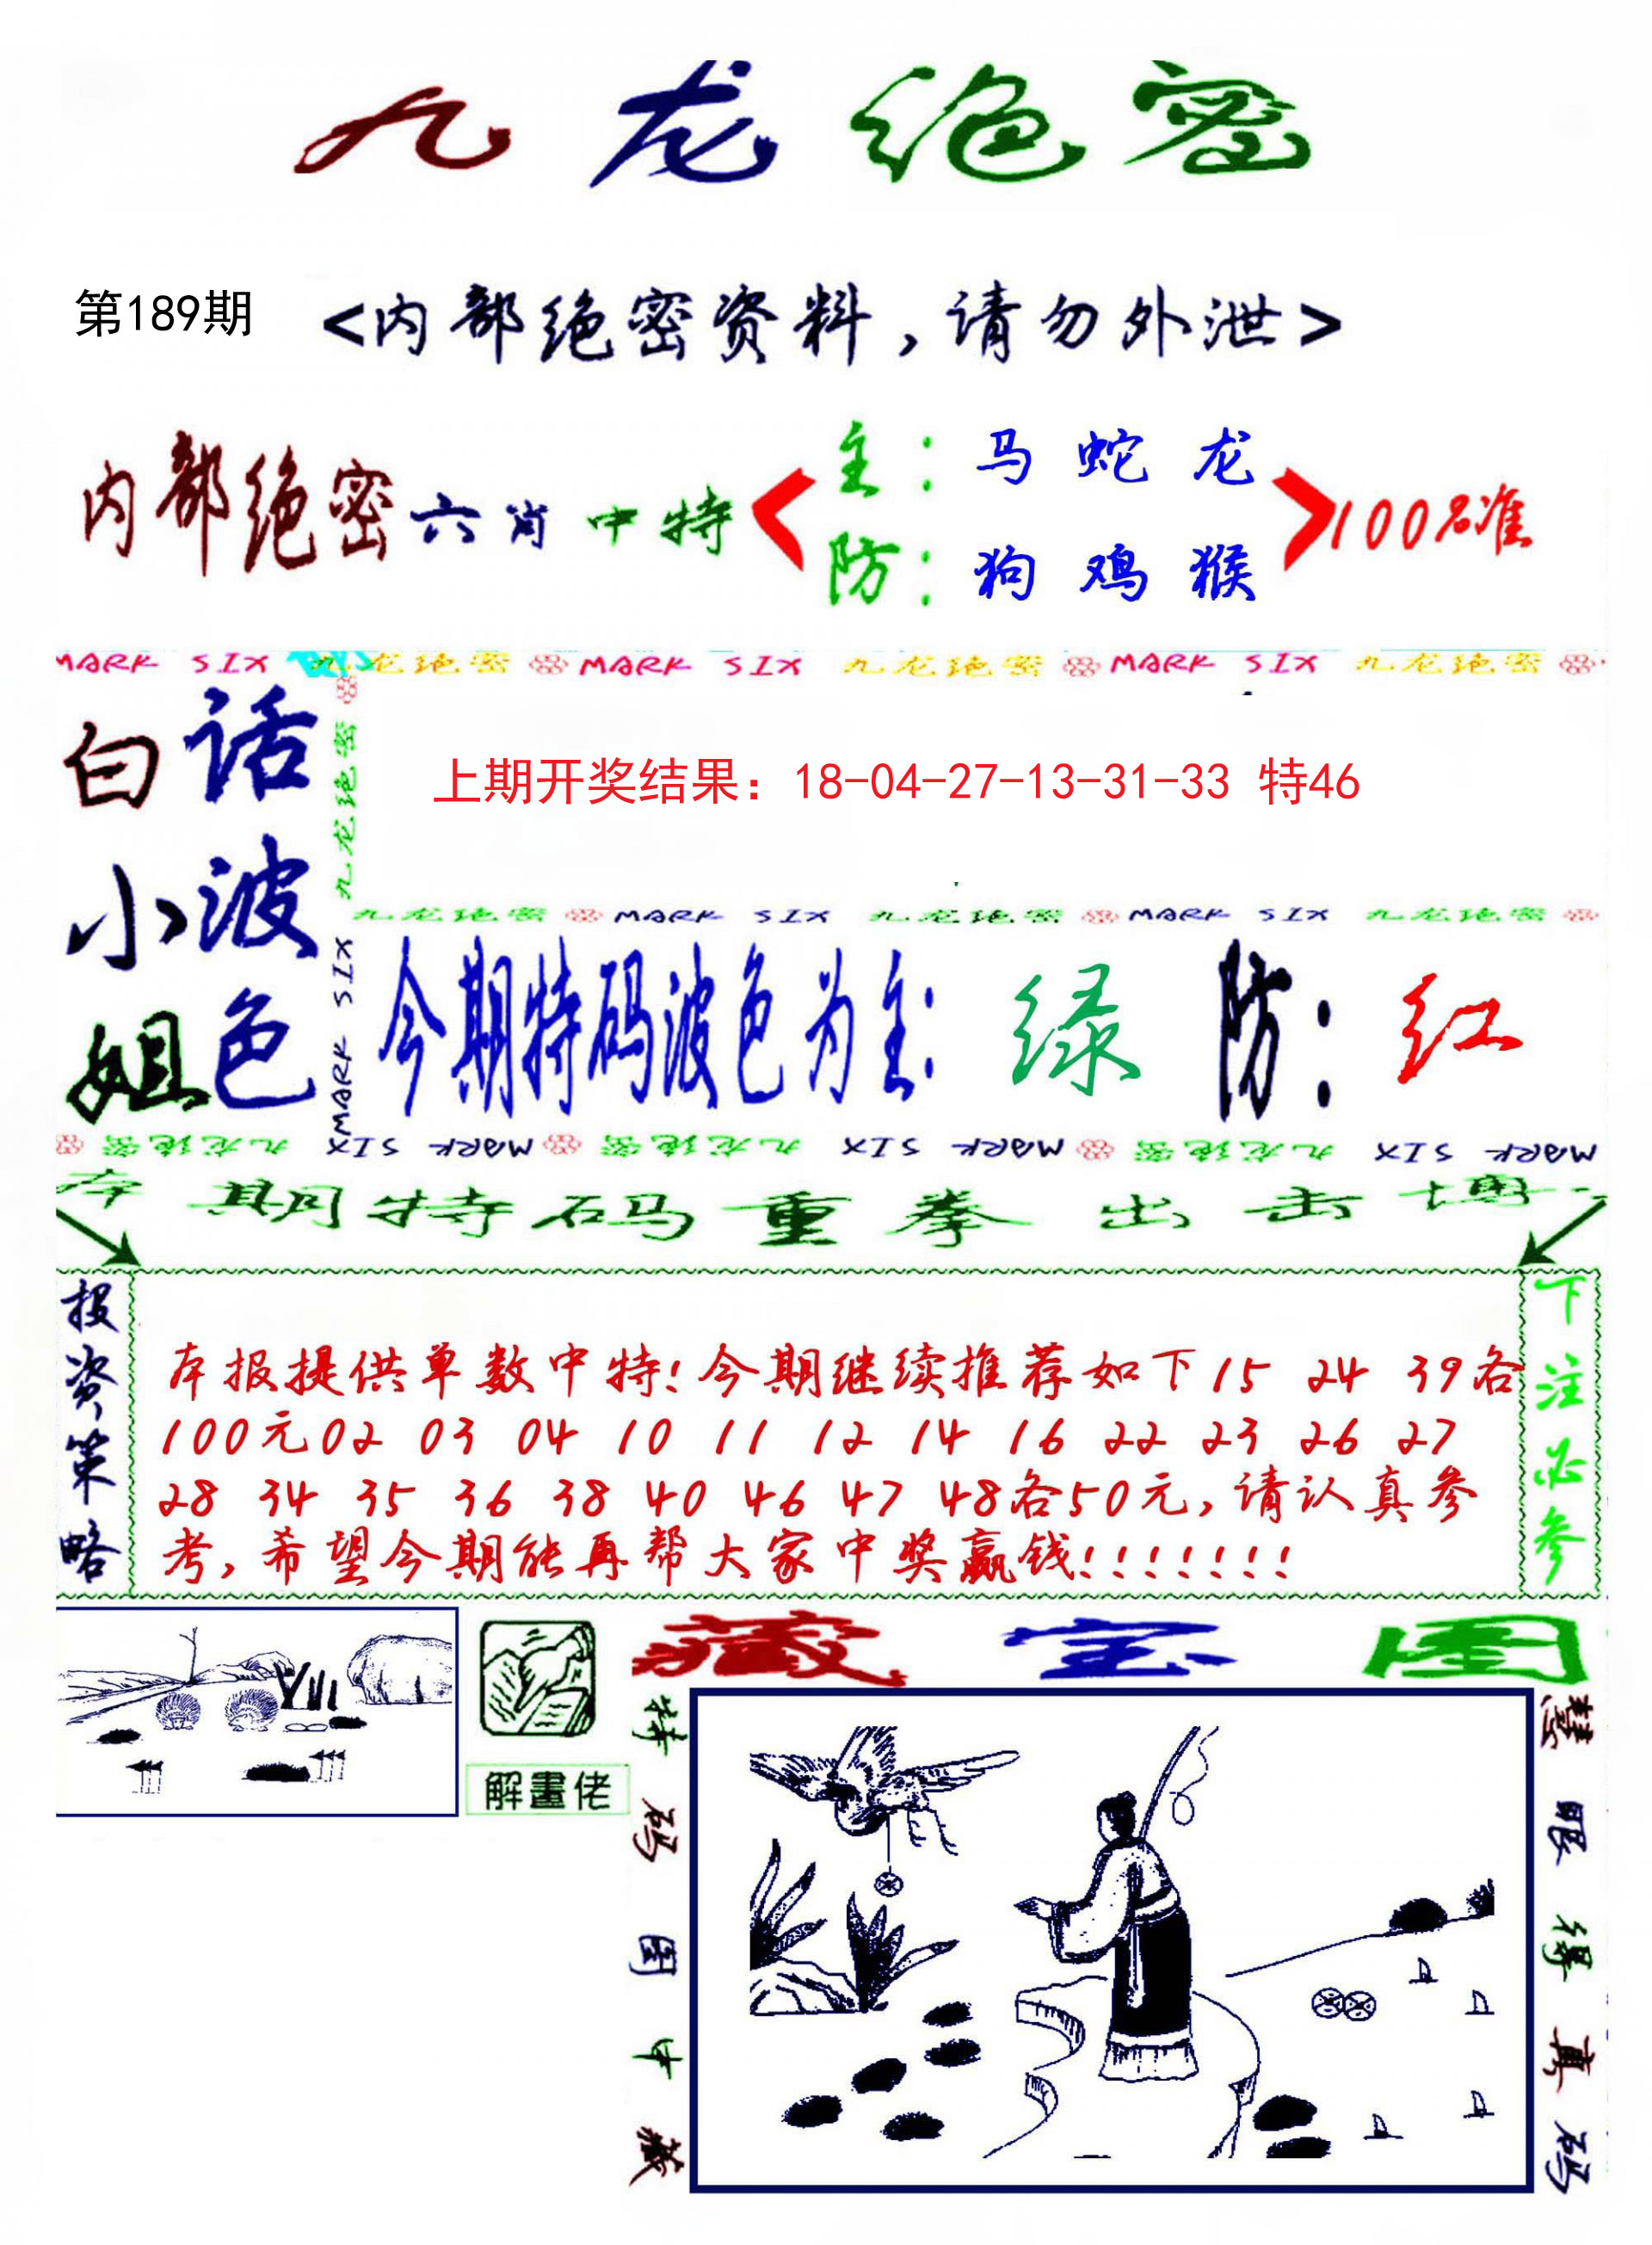 九龙绝密
第189期
<内部绝密资料,请勿外泄>
内部绝密六肖中特
主: 马 蛇 龙
防: 狗 鸡 猴
100%准
MARK SIX 九龙绝密 MARK SIX 九龙绝密 MARK SIX 九龙绝密
白话
小波
姐色
九龙绝密
MARK SIX
上期开奖结果：18-04-27-13-31-33 特46
九龙绝密 MARK SIX 九龙绝密 MARK SIX 九龙绝密
今期特码波色为主: 绿 防: 红
九龙绝密 MARK SIX 九龙绝密 MARK SIX 九龙绝密 MARK SIX
本期特码重拳出击博
投资策略
本报提供单数中特!今期继续推荐如下15 24 39各
100元02 03 04 10 11 12 14 16 22 23 26 27
28 34 35 36 38 40 46 47 48各50元,请认真参
考,希望今期能再帮大家中奖赢钱!!!!!!!
下注必参
解畫佬
藏宝图
特码图中藏
慧眼得真码